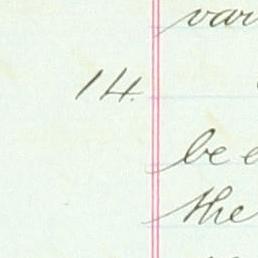 var
14.
be
the